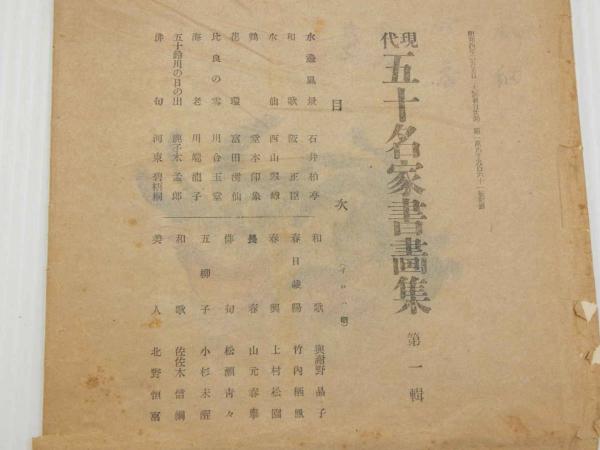 現代 五十名家書畫集 第一輯
目次 (イロハ順)
水邊風景 石井柏亭
和歌 阪正臣
水仙 西山翠嶂
鶴 堂本印象
花環 富田溪仙
比良の雪 川合玉堂
海老 川端龍子
五十鈴川の日の出 鹿子木孟郎
俳句 河東碧梧桐
和歌 與謝野晶子
春日 竹內栖鳳
春 上村松園
長春 山元春擧
俳句 松瀬青々
五柳子 小杉未醒
和歌 佐佐木信綱
美人 北野恒富